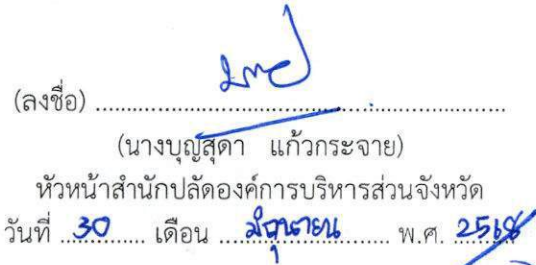 (ลงชื่อ) ........................................................
(นางบุญสุดา แก้วกระจาย)
หัวหน้าสำนักปลัดองค์การบริหารส่วนจังหวัด
วันที่ ...30... เดือน ...มิถุนายน... พ.ศ. 2568